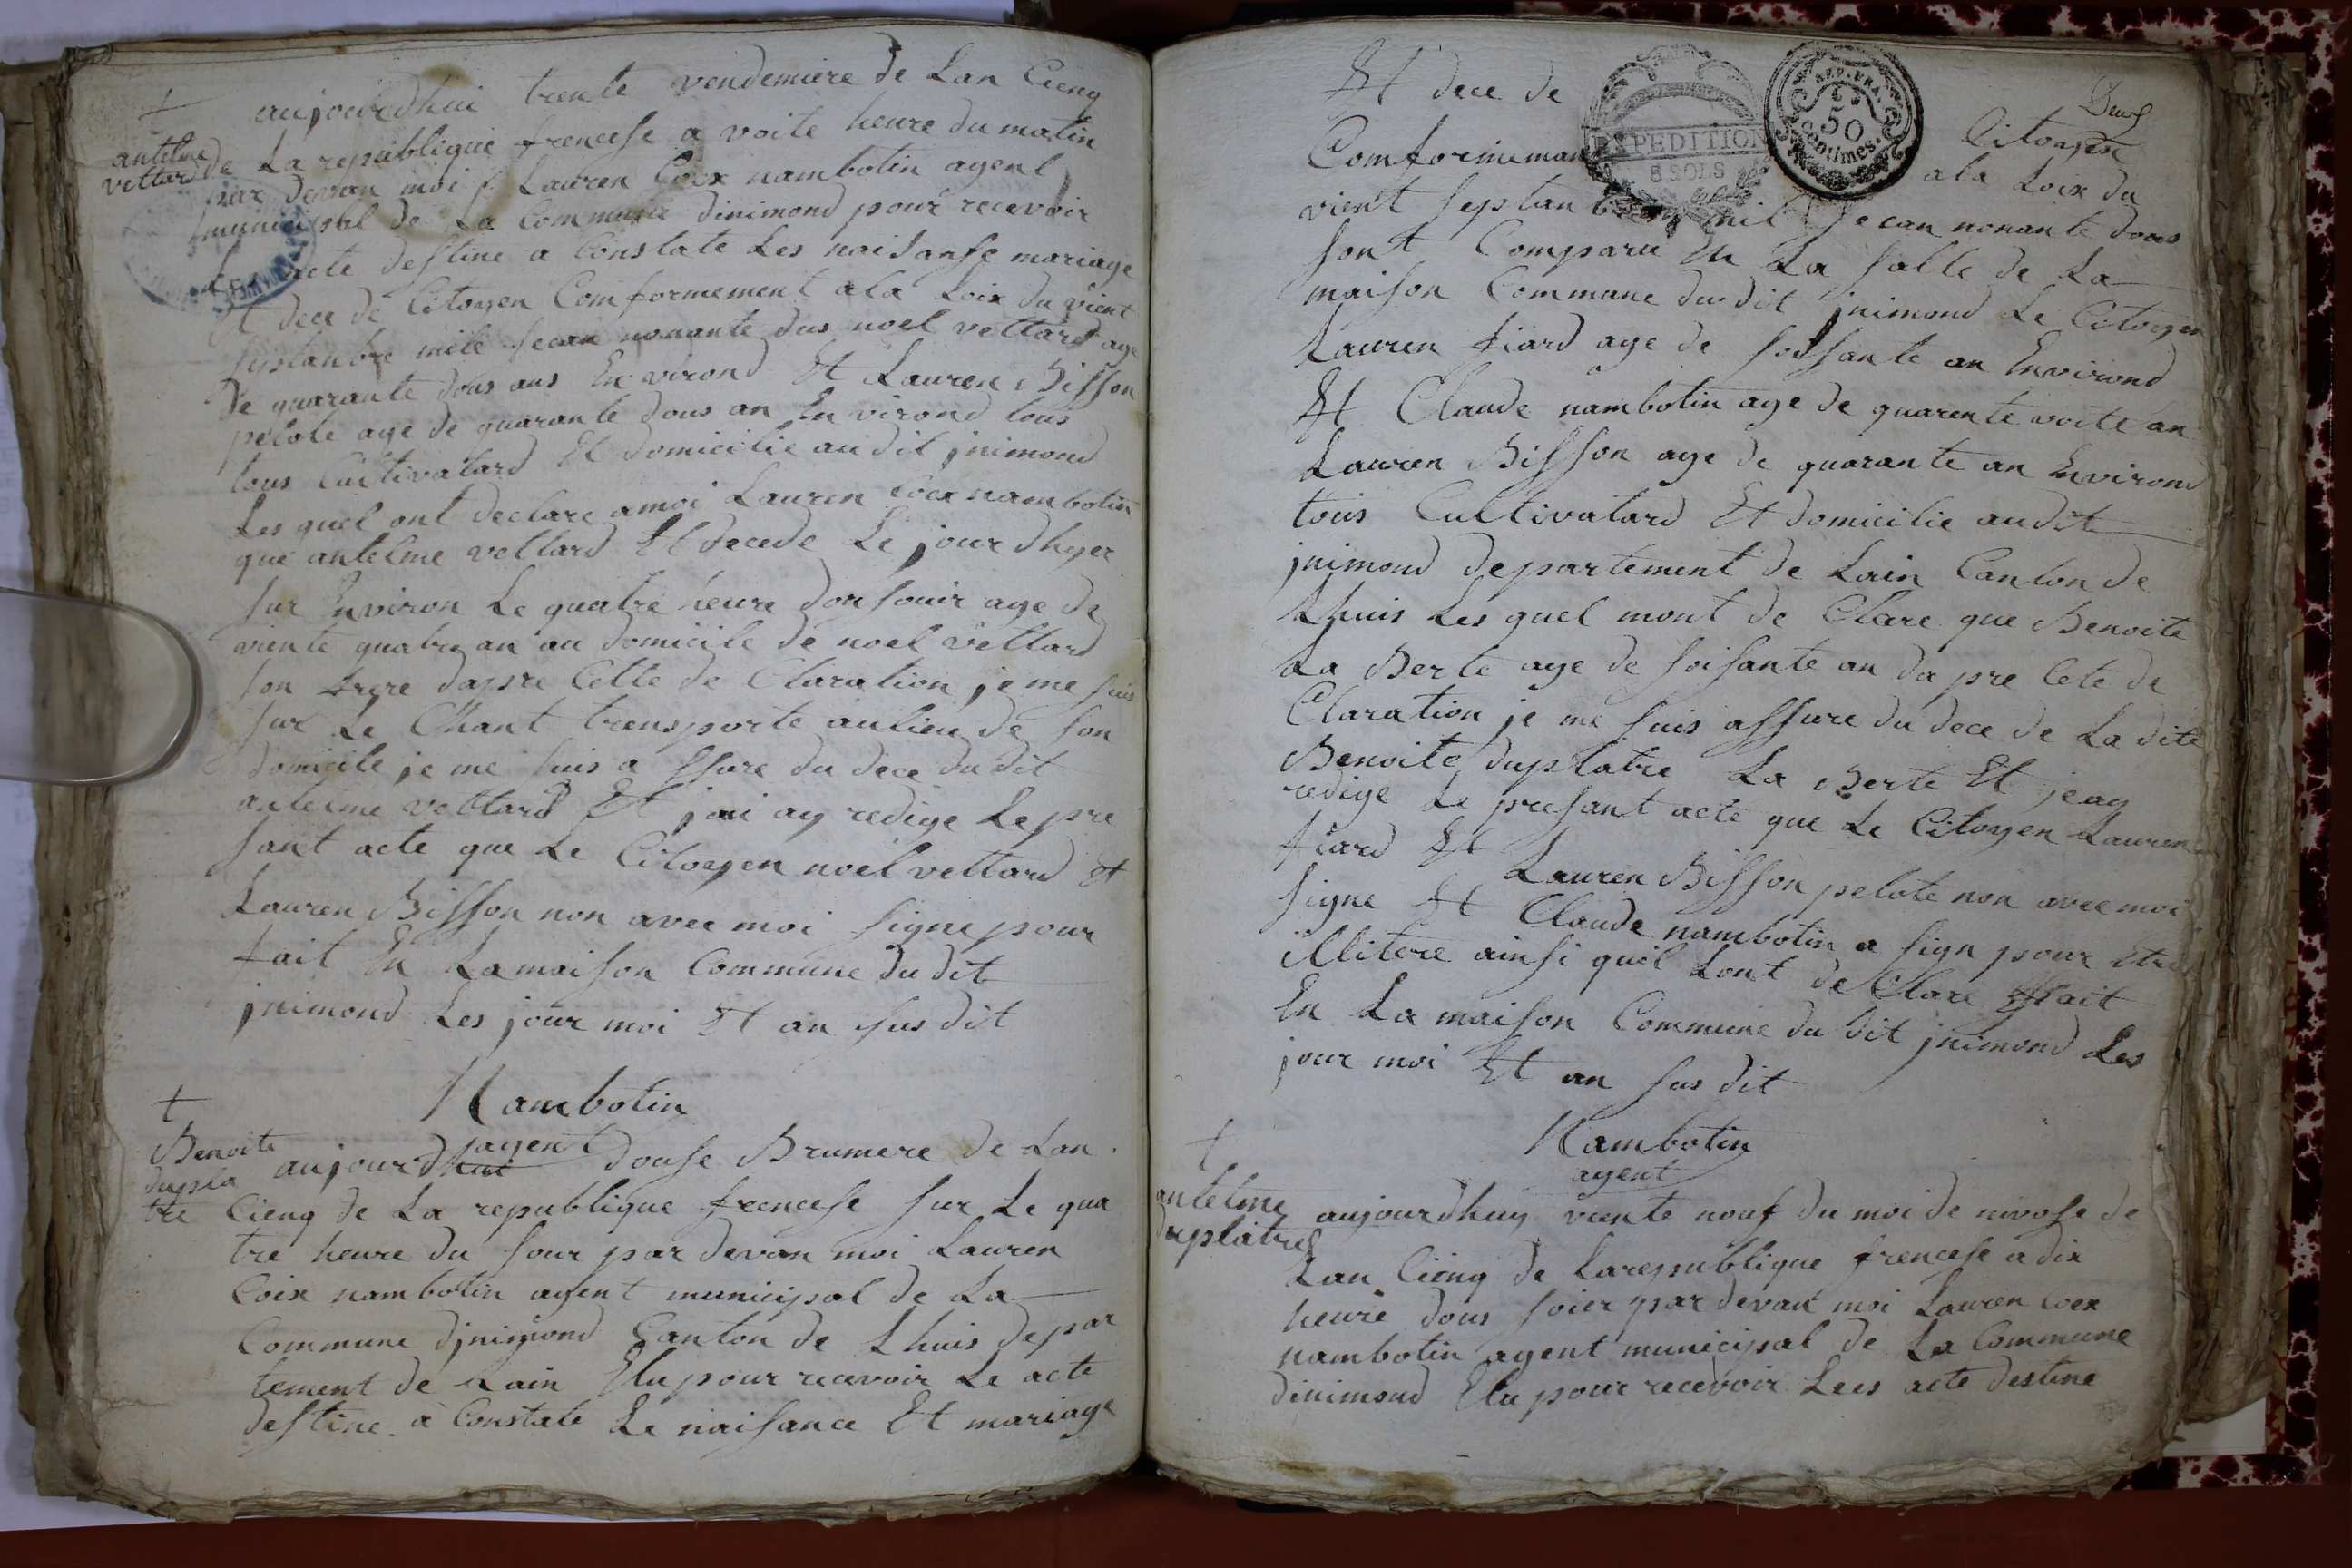 +
antelme
vettard
aujourdhui trente vendemiere de Lan Cienq
de La republique frencese a voite heure du matin
par devan moi Lauren Coex nambotin agent
municipal de La Commune dinimond pour recevoir
acte destine a Constate Les naisanse mariage
Et dece de Citoyen Comformement ala Loix du vient
septanbre mile secan nonante dus noel vettard age
De quarante dous ans Environd Et Lauren Bisson
pelote age de quarante dous an Environd tous
tous Cultivatard Et domicilie audit jnimond
Les quel ont declare amoi Lauren Coex nambotin
que antelme vettard Et decede Le jour dhyer
sur Environ Le quatre heure dou souir age de
viente quatre an au domicile de noel vettard
son frere dapre Cette de Claration je me suis
sur Le Chant transporte au lieu de son
domicile je me suis a ssure du dece dudit
antelme vettard Et jai ay redige Le pre
sant acte que Le Citoeyen noel vettard Et
Lauren Bisson non avec moi signe pour
fait En La maison Commune dudit
jnimond Les jour moi Et an sus dit
Nambotin
agent
+
Benoite
dupla
tre
aujourdhui douse Brumere de Lan
Cienq de La republique frencese sur Le qua
tre heure du sour par devan moi Lauren
Coix nambotin agent municipal de La
Commune djnimond Canton de Lhuis depar
tement de Lain Elu pour recevoir Le acte
destine a Constate Le naisance Et mariage
Et dece de Citoyen
EXPEDITION
8 SOLS
REP. FRA.
50
Centimes.
Comformeman ala Loix du
vient septanbre mil secan nonante dous
sont Comparu En La salle de La
maison Commune dudit jnimond Le Citoeyen
Lauren fiard age de soissante an Environd
Et Claude nambotin age de quarente voite an
Lauren Bisson age de quarante an Environd
tous Cultivatard Et domicilie audit
jnimond departement de Lain Canton de
Lhuis Les quel mont de Clare que Benoite
La Berte age de soisante an da pre Cete de
Claration je me suis assure du dece de La dite
Benoite duplatre La Berte Et jeay
redige Le presant acte que Le Citoyen Lauren
fiard Et Lauren Bisson pelote non avec moi
signe Et Claude nambotin a sign pour Etre
illitere ainsi quil Lont de Clare fait
En La maison Commune du dit jnimond Les
jour moi Et an sus dit
Nambotin
agent
+
antelme
duplatre
aujourdhuy viente nouf du moi de nivose de
Lan Cienq de Larepublique frencese a dix
heure dous soier par devant moi Lauren coex
nambotin agent municipal de La Commune
dinimond Elu pour recevoir Lees acte destine